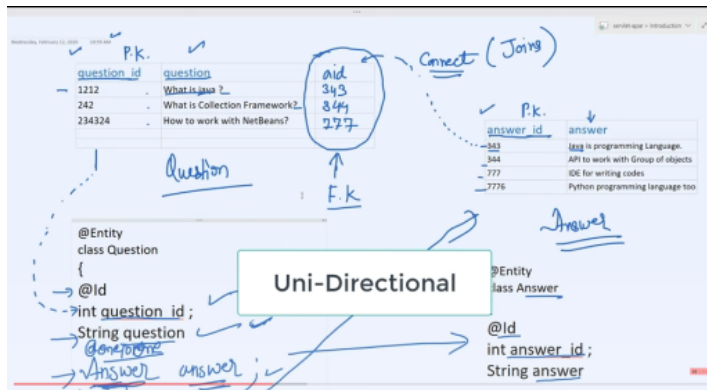 Wednesday, February 12, 2020 10:59 AM
servlet-apar > Introduction
P.K.
question_id question aid
1212 What is java ? 343
242 What is Collection Framework? 344
234324 How to work with NetBeans? 777
Connect (Joins)
P.K.
answer_id answer
343 Java is programming Language.
344 API to work with Group of objects
777 IDE for writing codes
7776 Python programming language too
Question
F.K
Answer
@Entity
class Question
{
@Id
int question_id ;
String question
@OneToOne
Answer answer ;
Uni-Directional
@Entity
class Answer
@Id
int answer_id ;
String answer